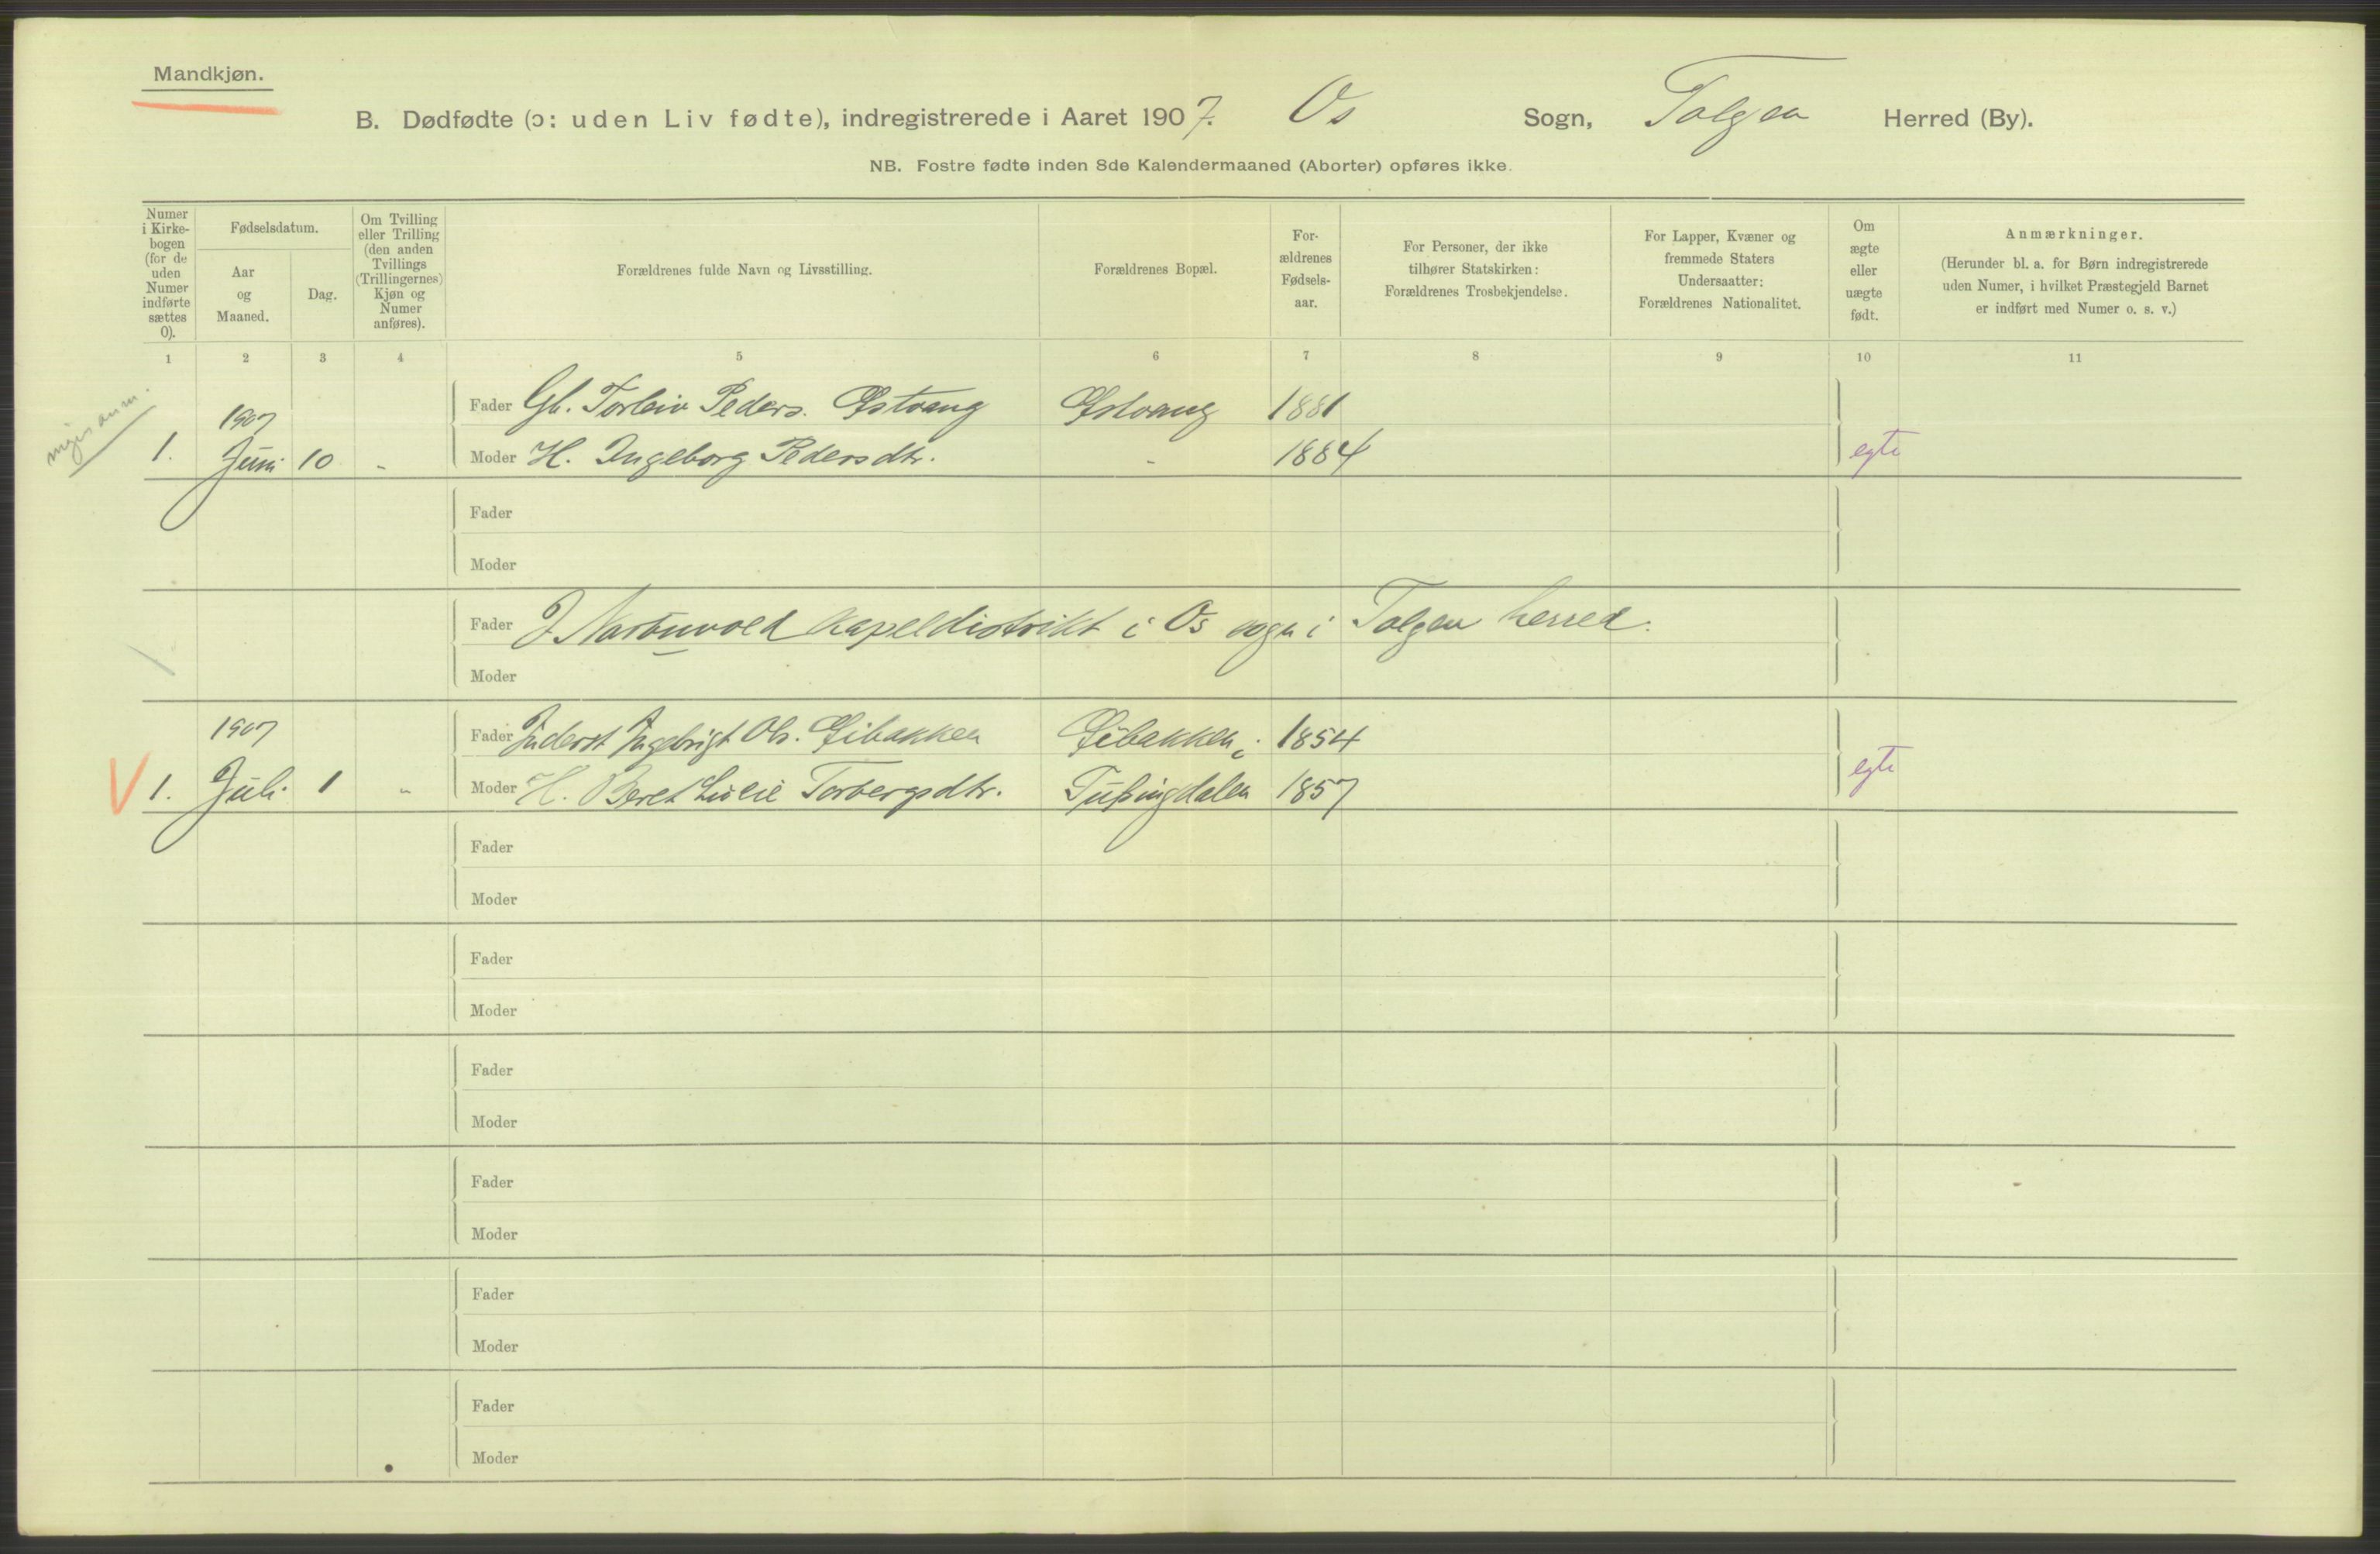 Mandkjøn.
B. Dødfødte (ɔ: uden Liv fødte), indregistrerede i Aaret 1907. Os Sogn, Tolgen Herred (By).
NB. Fostre fødte inden 8de Kalendermaaned (Aborter) opføres ikke.
Numer
i Kirke-
bogen
(for de
uden
Numer
indførte
sættes
0).
Fødselsdatum.
Aar
og
Maaned.
Dag.
Om Tvilling
eller Trilling
(den anden
Tvillings
(Trillingernes)
Kjøn og
Numer
anføres).
Forældrenes fulde Navn og Livsstilling.
Forældrenes Bopæl.
For-
ældrenes
Fødsels-
aar.
For Personer, der ikke
tilhører Statskirken:
Forældrenes Trosbekjendelse.
For Lapper, Kvæner og
fremmede Staters
Undersaatter:
Forældrenes Nationalitet.
Om
ægte
eller
uægte
født.
Anmærkninger.
(Herunder bl. a. for Børn indregistrerede
uden Numer, i hvilket Præstegjeld Barnet
er indført med Numer o. s. v.)
1 2 3 4 5 6 7 8 9 10 11
1907
Fader Gb. Torleiv Peders. Østvang Østvang 1881
1. Juni 10 - Moder H. Ingeborg Pedersdtr. - 1884 egte
Fader
Moder
Fader I Narbuvold kapeldistrikt i Os sogn i Tolgen herred.
Moder
1907
Fader Inderst Ingebrigt Ols. Øibakken Øibakken i 1854
V 1. Juli 1 " Moder H. Beret Lucie Torbergsdtr. Tufsingdalen 1857 egte
Fader
Moder
Fader
Moder
Fader
Moder
Fader
Moder
Fader
Moder
Fader
Moder